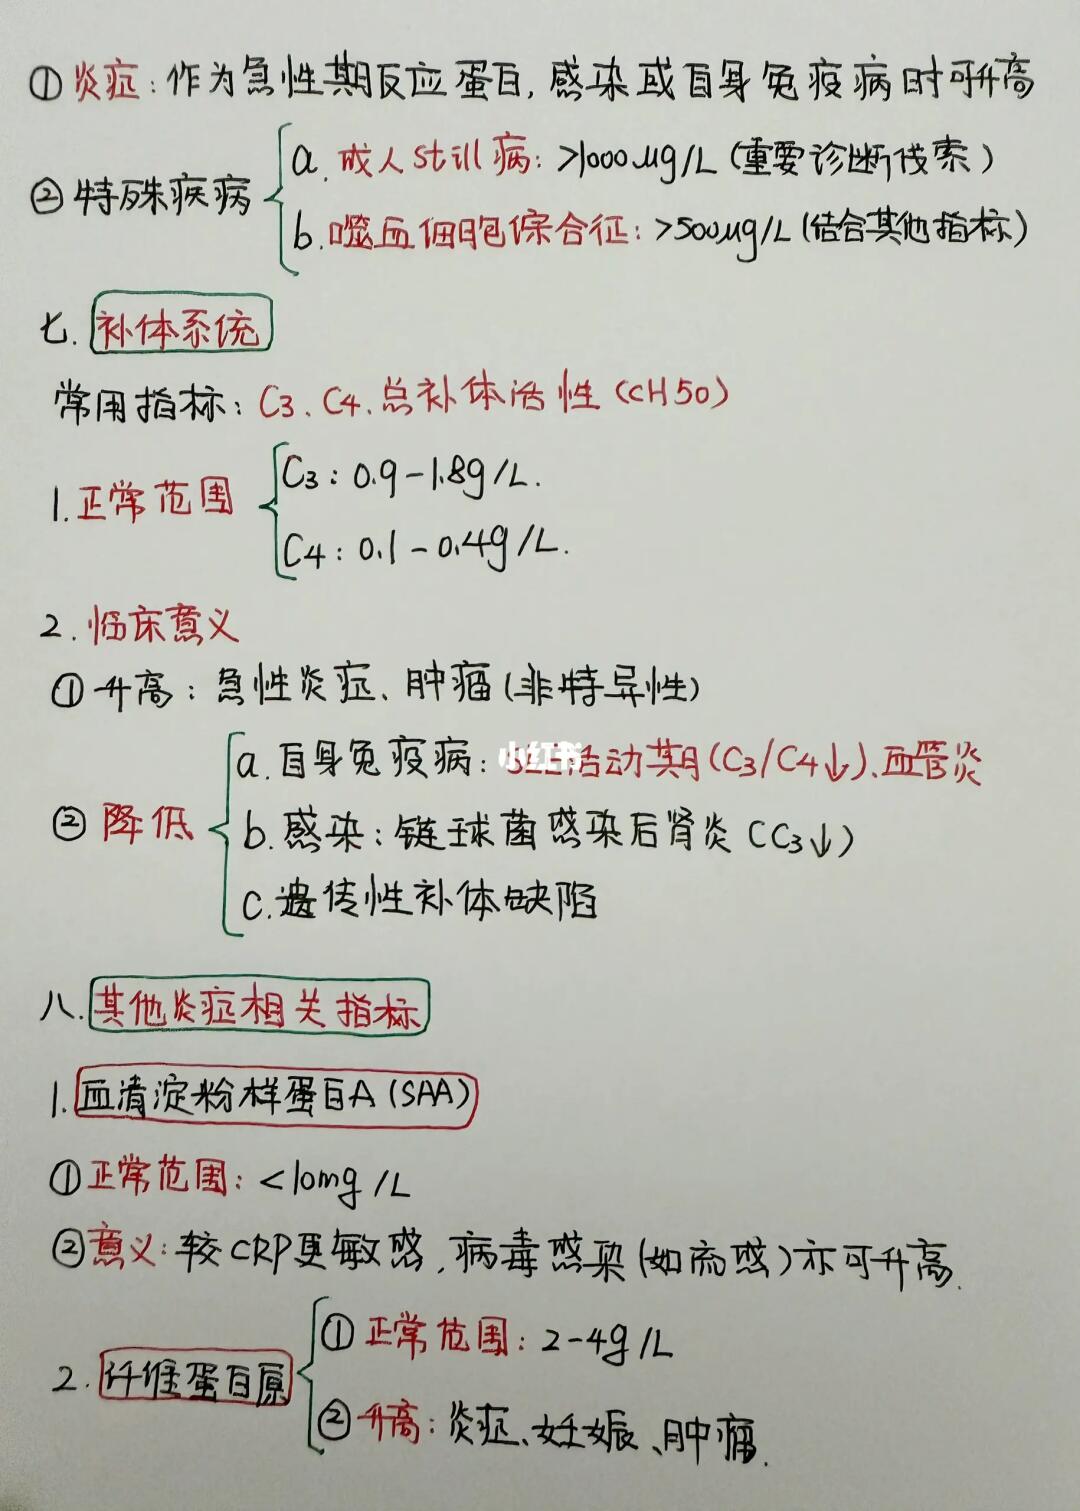 ①炎症：作为急性期反应蛋白，感染或自身免疫病时可升高
②特殊疾病
a.成人still病：>1000μg/L（重要诊断线索）
b.噬血细胞综合征：>500μg/L（结合其他指标）
七.补体系统
常用指标：C3、C4、总补体活性（CH50）
1.正常范围
C3：0.9-1.8g/L.
C4：0.1-0.4g/L.
2.临床意义
①升高：急性炎症、肿瘤（非特异性）
②降低
a.自身免疫病：活动期（C3/C4↓）、血管炎
小红书
b.感染：链球菌感染后肾炎（C3↓）
c.遗传性补体缺陷
八.其他炎症相关指标
1.血清淀粉样蛋白A（SAA）
①正常范围：<10mg/L
②意义：较CRP更敏感，病毒感染（如流感）亦可升高.
2.纤维蛋白原
①正常范围：2-4g/L
②升高：炎症、妊娠、肿瘤.